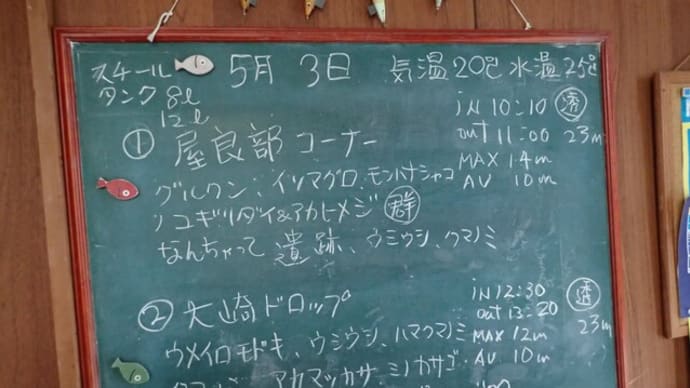 スチール
タンク 8ℓ
12ℓ
5月 3日 気温20℃ 水温25℃
① 屋良部コーナー
グルクン、イソマグロ、モンハナシャコ
ノコギリダイ&アカヒメジ 群
なんちゃって 遺跡、ウミウシ、クマノミ
iN 10:10 透
out 11:00 23m
MAX 14m
AV 10m
② 大崎ドロップ
ウメイロモドキ、ウミウシ、ハマクマノミ
アカマツカサ、ミノカサゴ
iN 12:30 透
out 13:20 23m
MAX 12m
AV 10m